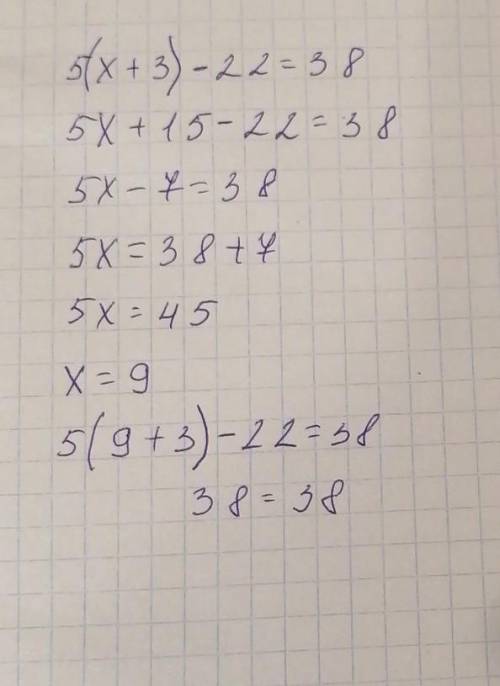 5(x+3)-22=38
5x+15-22=38
5x-7=38
5x=38+7
5x=45
x=9
5(9+3)-22=38
38=38